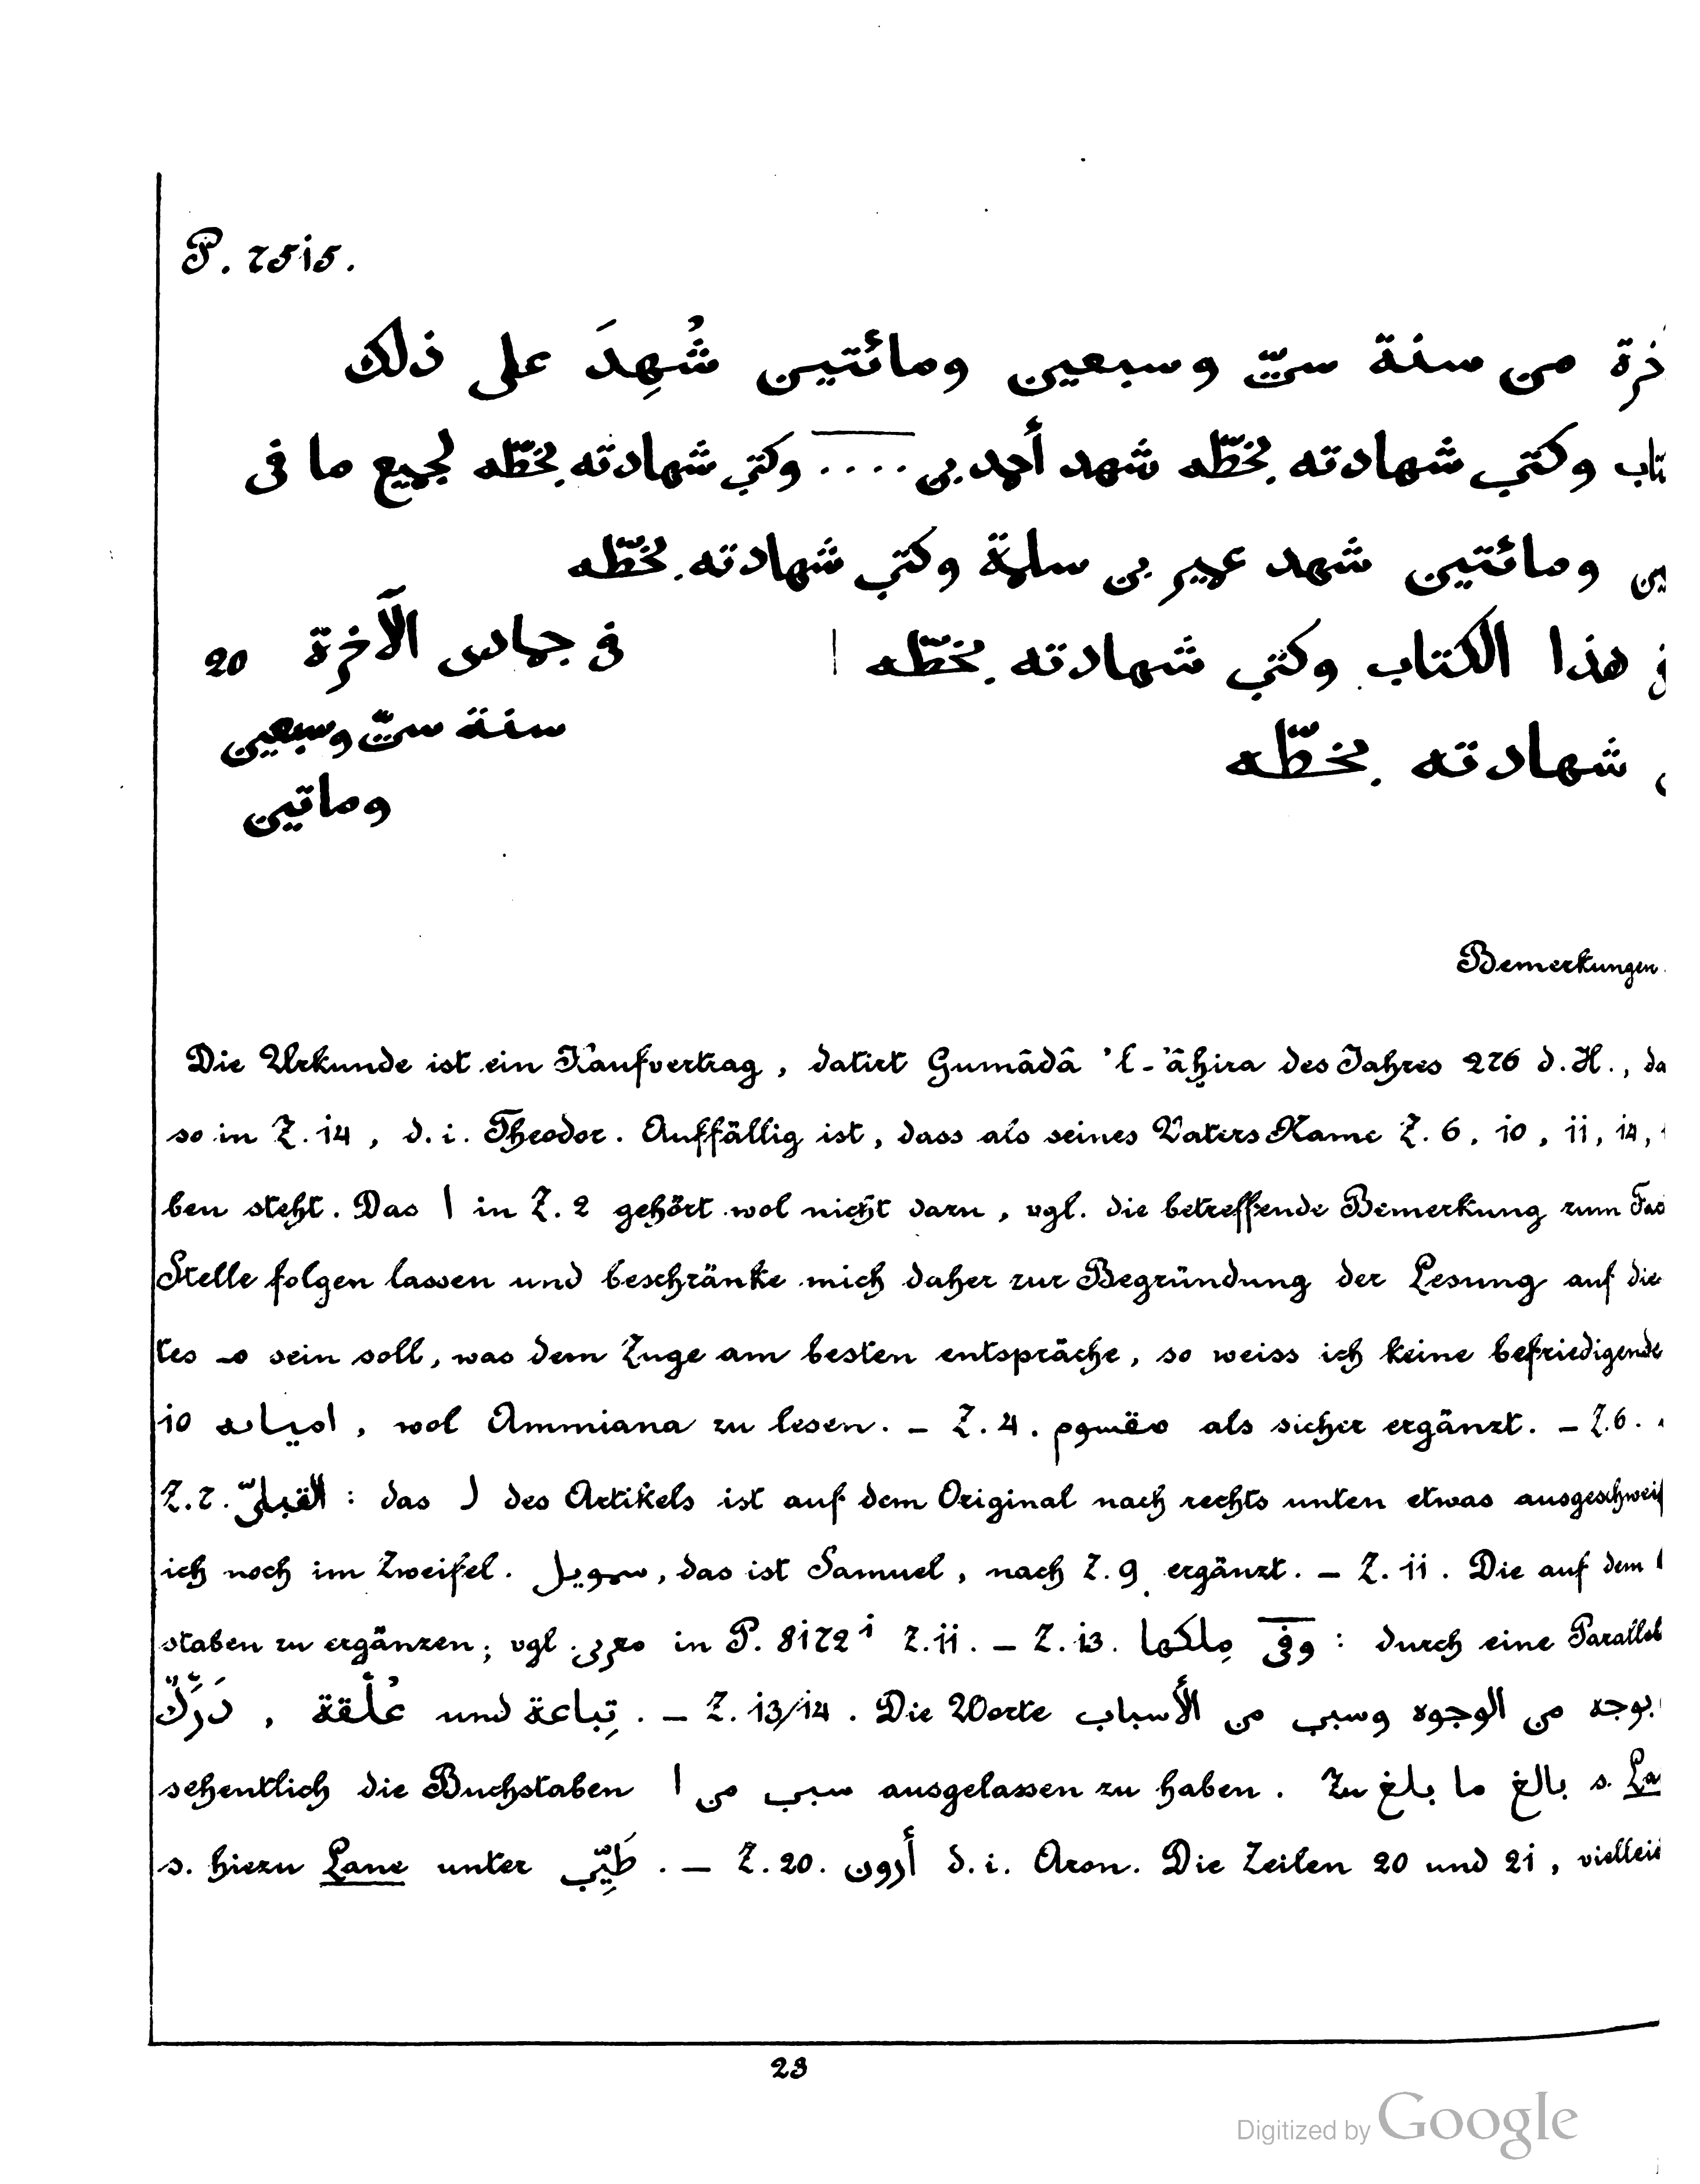 P. 7515.
خرة من سنة ستّ وسبعين ومائتين شُهِدَ على ذلك
تاب وكتب شهادته بخطّه شهد أحمد بن .... وكتب شهادته بخطّه لجميع ما فى
ين ومائتين شهد عمير بن سلمة وكتب شهادته بخطّه
هذا الكتاب وكتب شهادته بخطّه | فى جمادى الآخرة 20
شهادته بخطّه سنة ستّ وسبعين
وماتين
Bemerkungen.
Die Urkunde ist ein Kaufvertrag, datirt Gumâdâ 'l-'âḫira des Jahres 276 d. H., da
so in Z. 14, d. i. Theodor. Auffällig ist, dass als seines Vaters Name Z. 6, 10, 11, 14,
ben steht. Das ا in Z. 2 gehört wol nicht dazu, vgl. die betreffende Bemerkung zum Fac
Stelle folgen lassen und beschränke mich daher zur Begründung der Lesung auf die
tes ـه sein soll, was dem Zuge am besten entspräche, so weiss ich keine befriedigende
10 اميانه, wol Ammiana zu lesen. – Z. 4. مقسوم als sicher ergänzt. – Z. 6.
Z. 7. القبلىّ : das ل des Artikels ist auf dem Original nach rechts unten etwas ausgeschweif
ich noch im Zweifel. سمويل, das ist Samuel, nach Z. 9 ergänzt. – Z. 11. Die auf dem
staben zu ergänzen; vgl. معرى in P. 8172¹ Z. 11. – Z. 13. وفى ملكها : durch eine Parallel
دَرَكٌ , عُلْقة und تِباعة. – Z. 13/14. Die Worte بوجه من الوجوه وسبب من الأسباب
sehentlich die Buchstaben سبب من ا ausgelassen zu haben. Zu بالغ ما بلغ s. La
s. hiezu Lane unter طَيِّب. – Z. 20. أرون d. i. Aron. Die Zeilen 20 und 21, vielleic
23
Digitized by Google